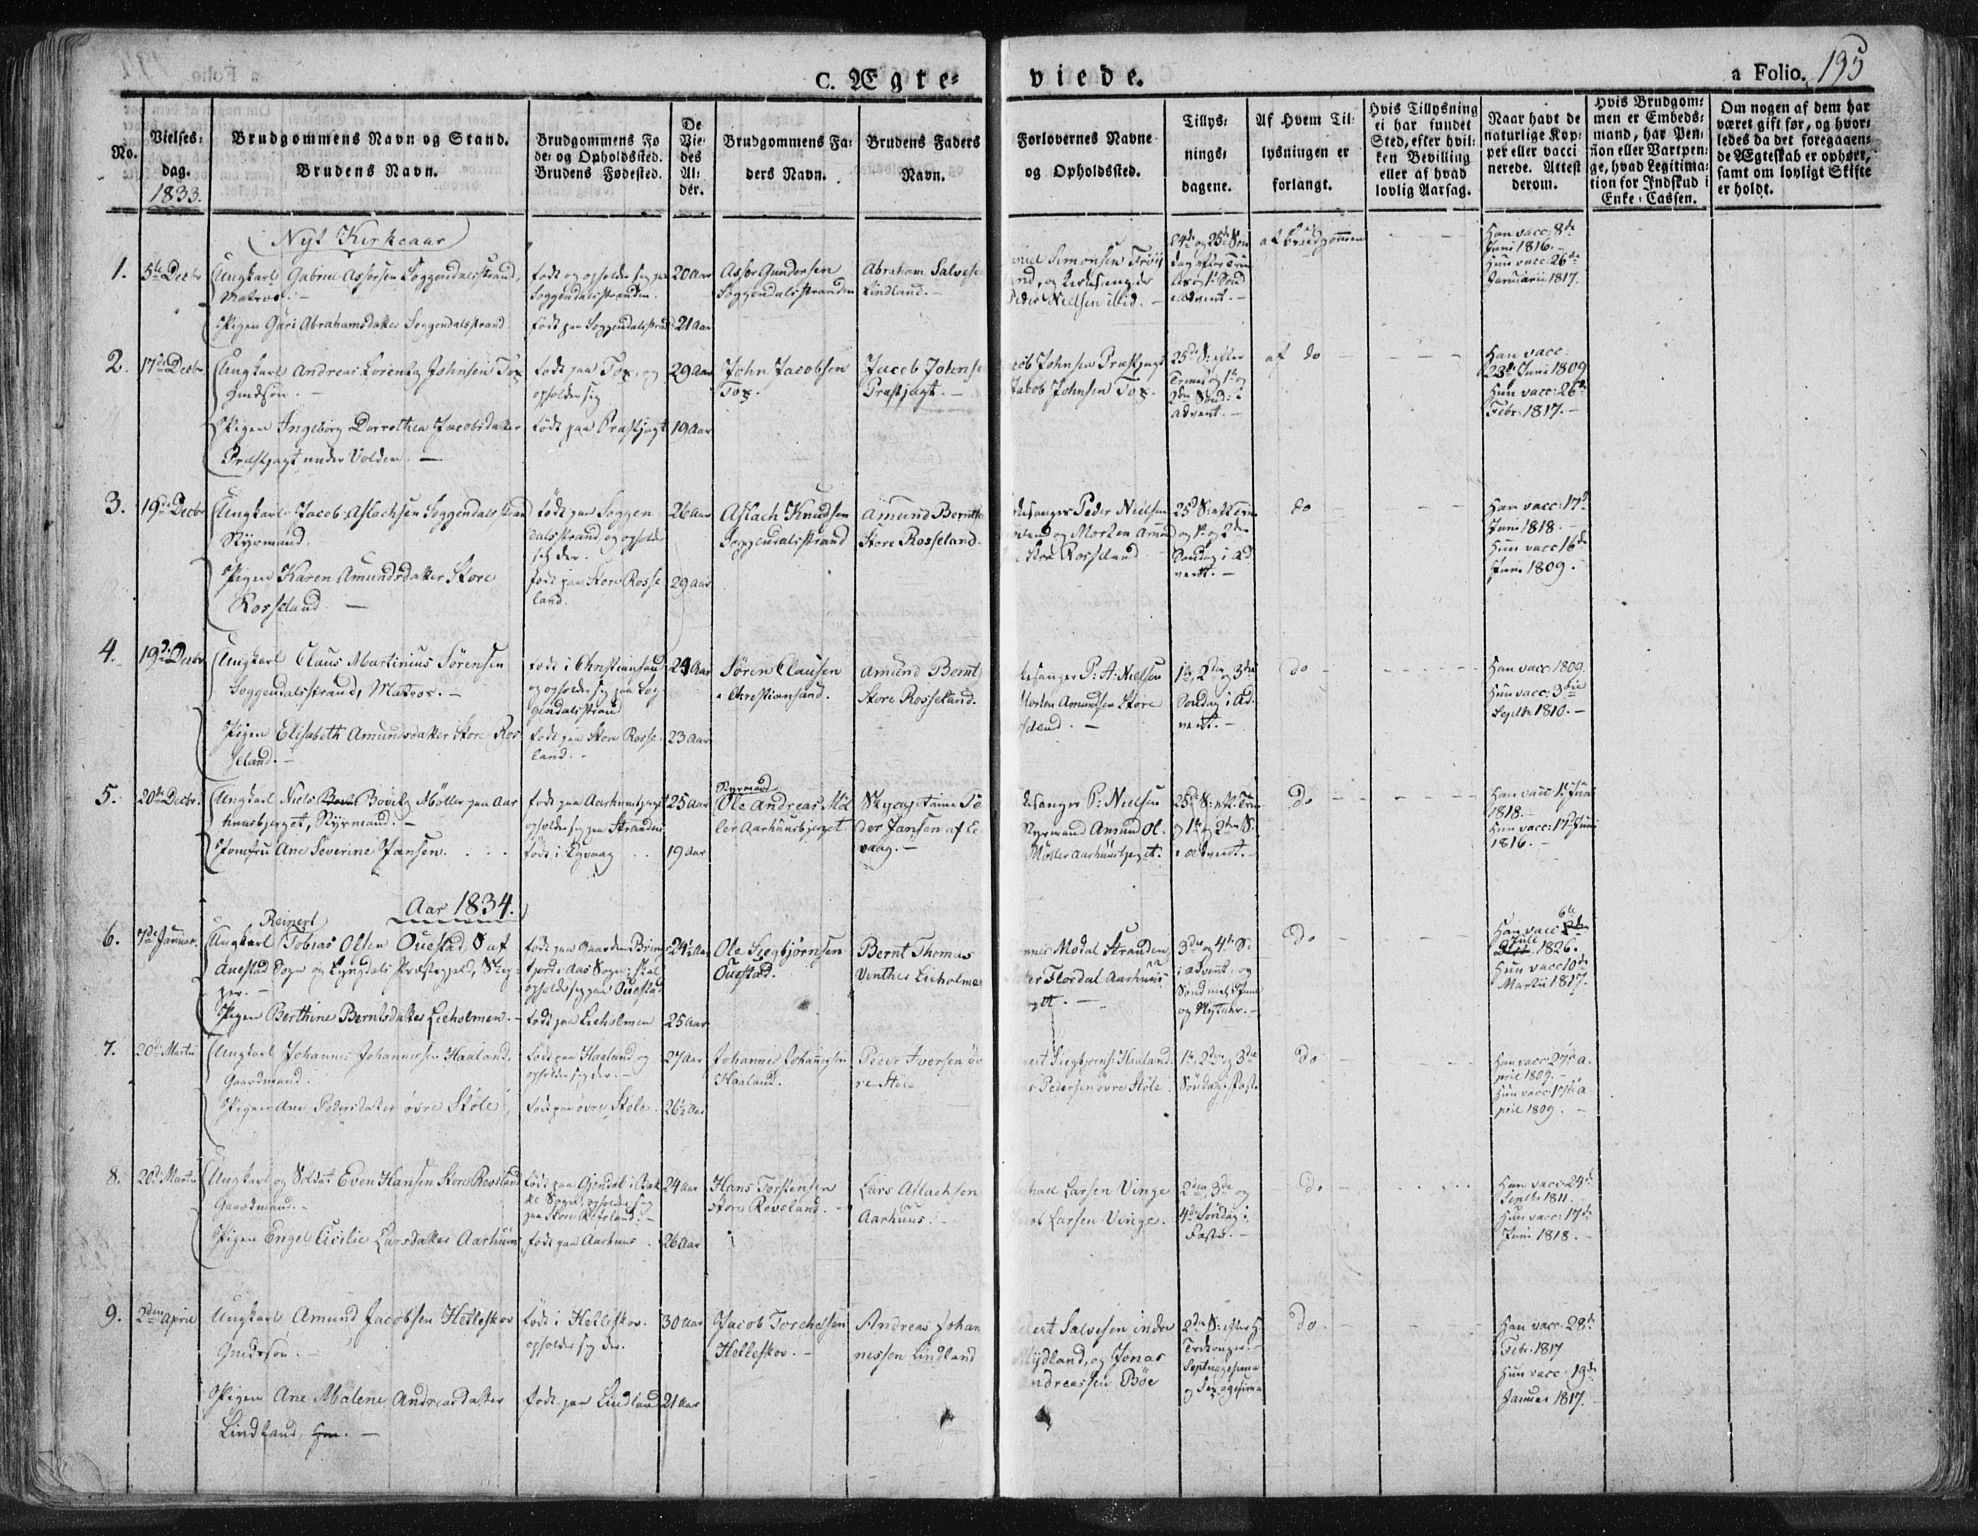 C. Ægte-
viede.
a Folio. 195
No.
Vielses-
dag.
1833.
Brudgommens Navn og Stand.
Brudens Navn.
Brudgommens Fø
de- og Opholdssted.
Brudens Fødested.
De
Vie-
des
Al-
der.
Brudgommens Fa-
ders Navn.
Brudens Faders
Navn.
Forlovernes Navne
og Opholdssted.
Tillys-
nings-
dagene.
Af Hvem Til-
lysningen er
forlangt.
Hvis Tillysning
ei har fundet
Sted, efter hvil-
ken Bevilling
eller af hvad
lovlig Aarsag.
Naar havt de
naturlige Kop-
per eller vacci
nerede. Attest
derom.
Hvis Brudgom-
men er Embeds-
mand, har Pen-
sion eller Vartpen-
ge, hvad Legitima-
tion for Indskud i
Enke-Cassen.
Om nogen af dem har
været gift før, og hvor-
ledes da det foregaaen-
de Ægteskab er ophørt,
samt om lovligt Skifte
er holdt.
Nyt Kirkeaar
1. 5te Decbr
Ungkarl Gabriel Assersen Soggendalsstrand,
Matros. -
Pigen Guri Abrahamsdatter Soggendalsstrand
født og opholder sig paa
Soggendalsstranden.
født paa Soggendalsstrand
20 Aar
21 Aar
Asser Gundersen
Soggendalsstranden
Abraham Salvesen
Lindland. -
Simonsen
og Kirkesanger
Peder Nielsen ibid. -
24de og 25de Søn
dag efter Trin
og 1ste Sønd
i Advent. -
af Brudgommen
Han vacc: 8de
Juni 1816. -
Hun vacc: 26de
Januarii 1817.
2. 17de Decbr
Ungkarl Andreas Lorentz Johnsen Tox,
Gaardsøn. -
Pigen Ingeborg Dorrothea Jacobsdatter
Præstjagt under Volden. -
født paa Tox, og
opholder sig
født paa Præstjagt
29 Aar
19 Aar
John Jacobsen
Tox.
Jacob Johnsen
Præstjagt. -
Johnsen Præstjagt
Jakob Johnsen Tox. -
25de S: efter
og 1ste og
2den Sønd: i
Advent. -
af do
Han vacc:
23de Juni 1809
Hun vacc: 26de
Febr: 1817. -
3. 19de Decbr
Ungkarl Jacob Aslachsen Soggendalsstrand
Styrmand.
Pigen Karen Amundsdatter Store
Rosseland. -
født paa Soggen
dalsstrand, og opholder
sig der.
født paa Store Rosse
land.
26 Aar
29 Aar
Aslach Knudsen
Soggendalsstrand
Amund Berntsen
Store Rosseland.
Kirkesanger Peder Nielsen
og Morten Amund
Store Rosseland
og 1ste og 2den
Søndag i Ad
vent. -
do
Han vacc: 17de
Juni 1818. -
Hun vacc 16de
Juni 1809.
4. 19de Decbr
Ungkarl Claus Martinius Sörensen
Soggendalsstrand, Matros. -
Pigen Elisabeth Amundsdatter Store Ros-
seland. -
født i Christiansand
og opholder sig paa Sog
gendalsstrand
født paa Store Rosse-
land. -
24 Aar
23 Aar
Sören Clausen
i Christiansand.
Amund Bernts
Store Rosseland.
Kirkesanger P: A: Nielsen
Morten Amundsen Store
1ste, 2den og 3die
Søndag i Ad-
vent. -
do
Han vacc: 1809.
Hun vacc: 3die
Septbr 1810. -
5. 20de Decbr.
Ungkarl Niels Bovitz Möller paa Aar
huusbjerget, Styrmand. -
Jomfru Ane Severine Jansen. . . .
født paa Aarhuusbjerget
opholder sig paa Stranden
født i Egvaag
25 Aar
19 Aar
Styrmand
Ole Andreas Möl
ler Aarhuusbjerget.
Skibscapitaine Pe
der Jansen af E
vaag. -
Kirkesanger P: Nielsen
Styrmand Amund Ol.
Möller Aarhuusbjerget.
25de S: efter Trin
og 1ste og 2den S:
i Advent. -
Do
Han vacc 1ste Juni
1818. -
Hun vacc: 17de Juni
1816. -
Aar 1834.
6. 7de Januar.
Reinert
Ungkarl Tobias Olsen Ouestad af
Auestad Sogn og Lyngdals Præstegjeld,
Pigen Berthine Berntsdatter Lieholmen. -
født paa Gaarden Bring
fjord i Aas Sogn, skal
opholde sig paa Ouestad
født paa Lieholmen
24½ Aar
25 Aar
Ole Siegbjörnsen
Ouestad.
Bernt Thomas
Lieholmen
Modal Stranden,
Flordal Aarhuus
bjerget. -
3die og 4de S:
i Advent, og
og Nytaar. -
Do
Han vacc 6te
Juli 1826.
Hun vacc 10de
Martii 1817.
7. 20de Martii
Ungkarl Johannes Johannessen Haaland,
Gaardmand.
Pigen Ane Pedersdatter övre Stöle
født paa Haaland og
opholder sig der. -
født paa övre Stöle.
27 Aar
26½ Aar
Johannes Johannesen
Haaland.
Peder Iversen öv
re Stöle
Siegbjörns: Haaland.
Pedersen övre Stöle.
1ste, 2den og 3die
Søndag i Faste.
Do
Han vacc: 27de A
pril 1809. -
Hun vacc: 17de A
pril 1809. -
8. 20de Martii
Ungkarl og Soldat Even Hansen Store Revsland
Gaardmand. -
Pigen Engel Cicilie Larsdatter Aarhuus
født paa Gjendal i Bak
ke Sogn, opholder sig
paa Store Refsland. -
født paa Aarhuus
24 Aar
26 Aar
Hans Torstensen
Store Revsland. -
Lars Aslachsen
Aarhuus. -
Larsen Vinge
Larsen Vinge.
2den, 3die og
4de Søndag i
Faste. -
do
Han vacc: 24de
Septbr 1811. -
Hun vacc: 17de
Juni 1818. -
9. 2den April
Ungkarl Amund Jacobsen Helleskov
Gaardsøn. -
Pigen Ane Malene Andreasdatter
Lindland, -
født i Helleskov.
opholder sig der.
født paa Lindland
30 Aar
21 Aar
Jacob Torchelsen
Helleskov. -
Andreas Johan
nessen Lindland
Salvesen indre
Mydland, og Jonas
Andreassen Böe
2den S: efter H
Trekonger. -
Septuagesima
og Sexagesima
Do
Han vacc: 28de
Febr. 1817
Hun vacc: 19de
Januar 1817. -